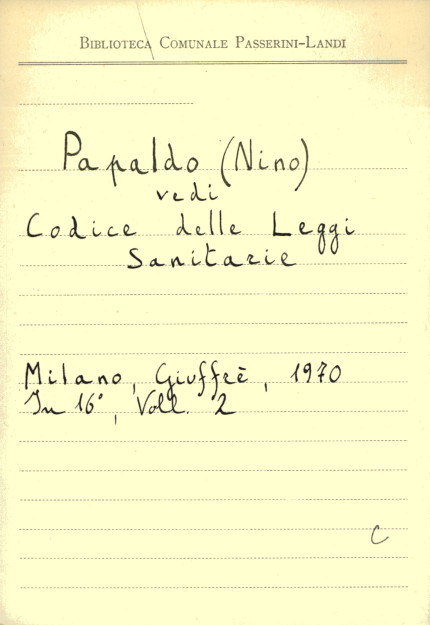 BIBLIOTECA COMUNALE PASSERINI-LANDI
Papaldo (Nino)
vedi
Codice delle Leggi
Sanitarie
Milano, Giuffrè, 1970
In 16°, Voll. 2
C